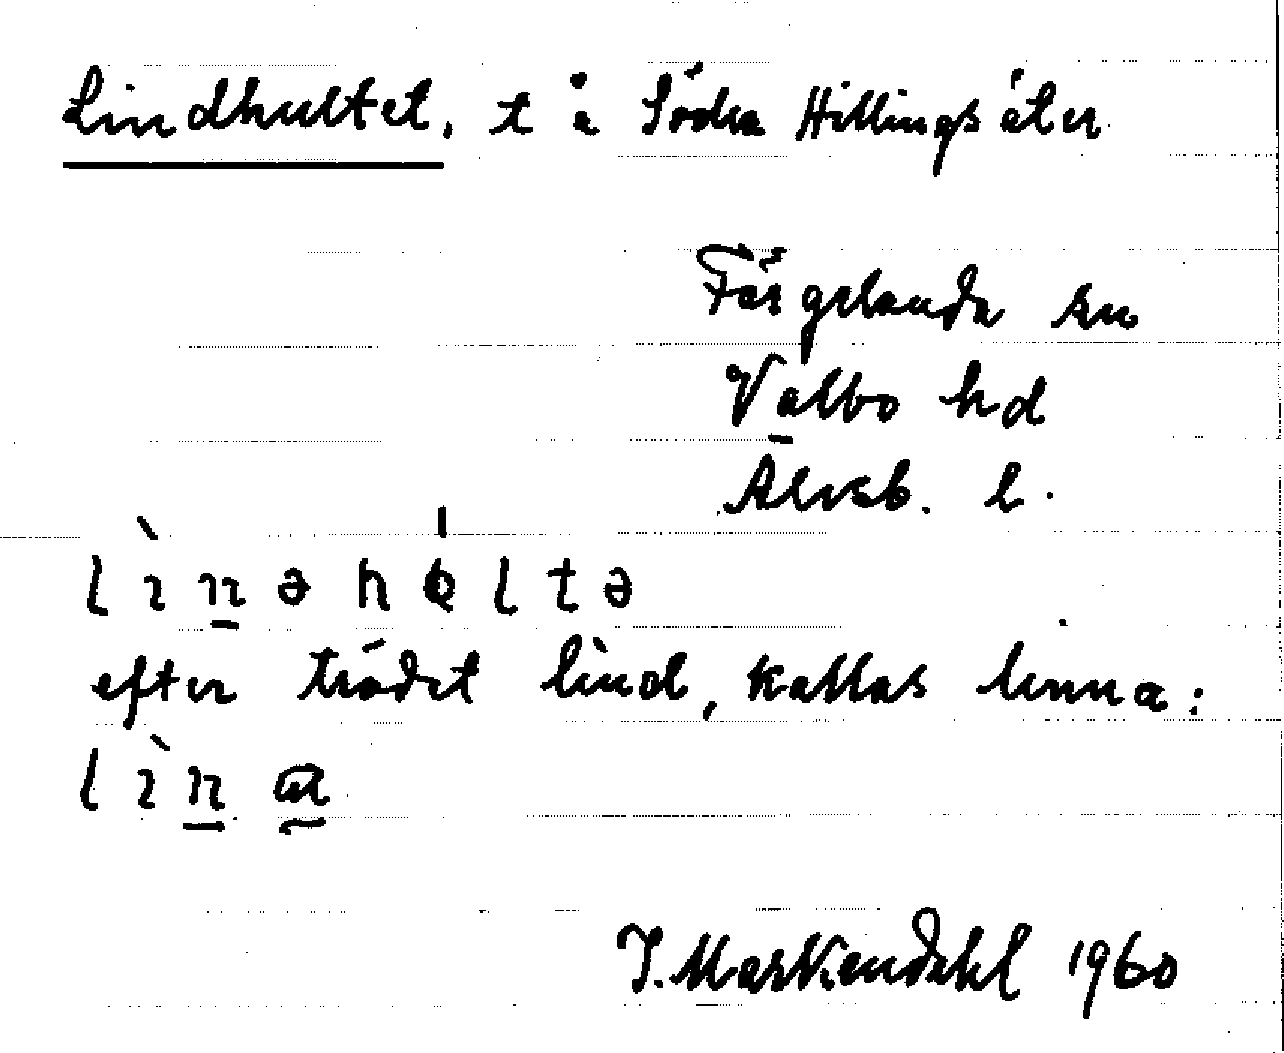 Lindhultet, t å Södra Hillingsäter
Färgelanda sn
Valbo hd
Älvsb. l.
lìnəhɵ́ltə
efter trädet lind, kallas linna:
lìna
J. Markendahl 1960